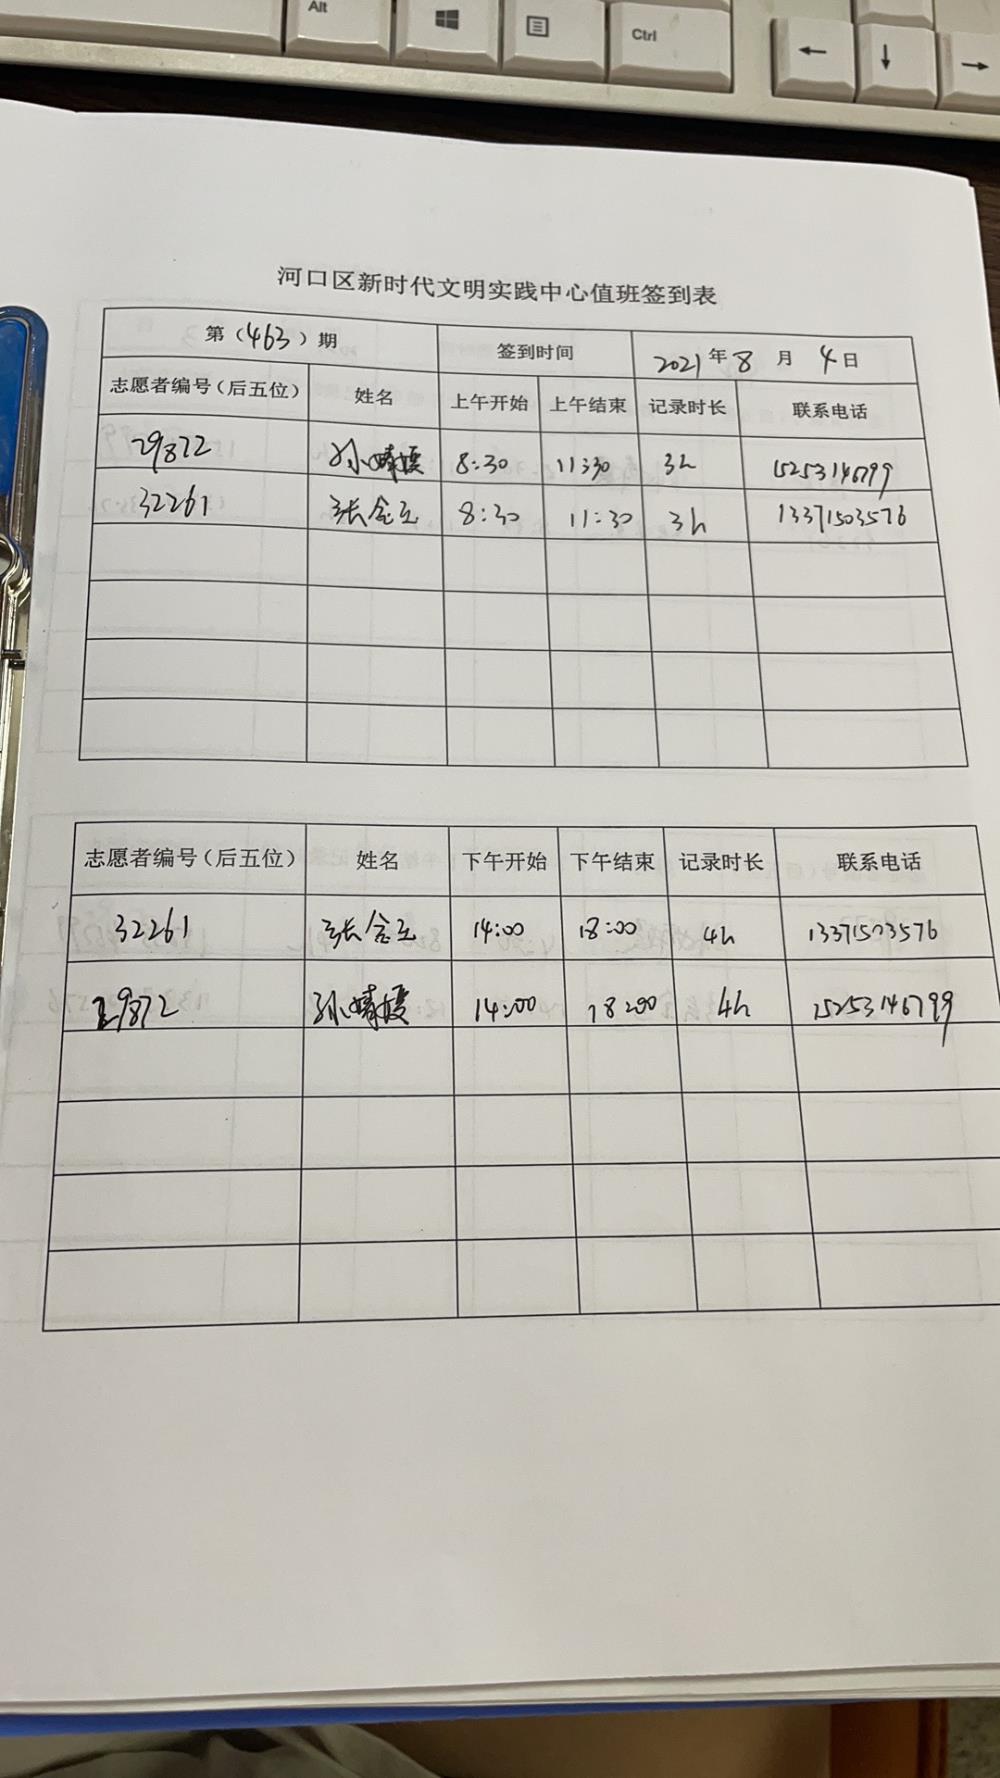 Alt
Ctrl
河口区新时代文明实践中心值班签到表
第（463）期 签到时间 2021年8月4日
志愿者编号（后五位） 姓名 上午开始 上午结束 记录时长 联系电话
29872 孙婧媛 8:30 11:30 3h 15253146799
32261 张金玉 8:30 11:30 3h 13371503576
志愿者编号（后五位） 姓名 下午开始 下午结束 记录时长 联系电话
32261 张金玉 14:00 18:00 4h 13371503576
29872 孙婧媛 14:00 18:00 4h 15253146799